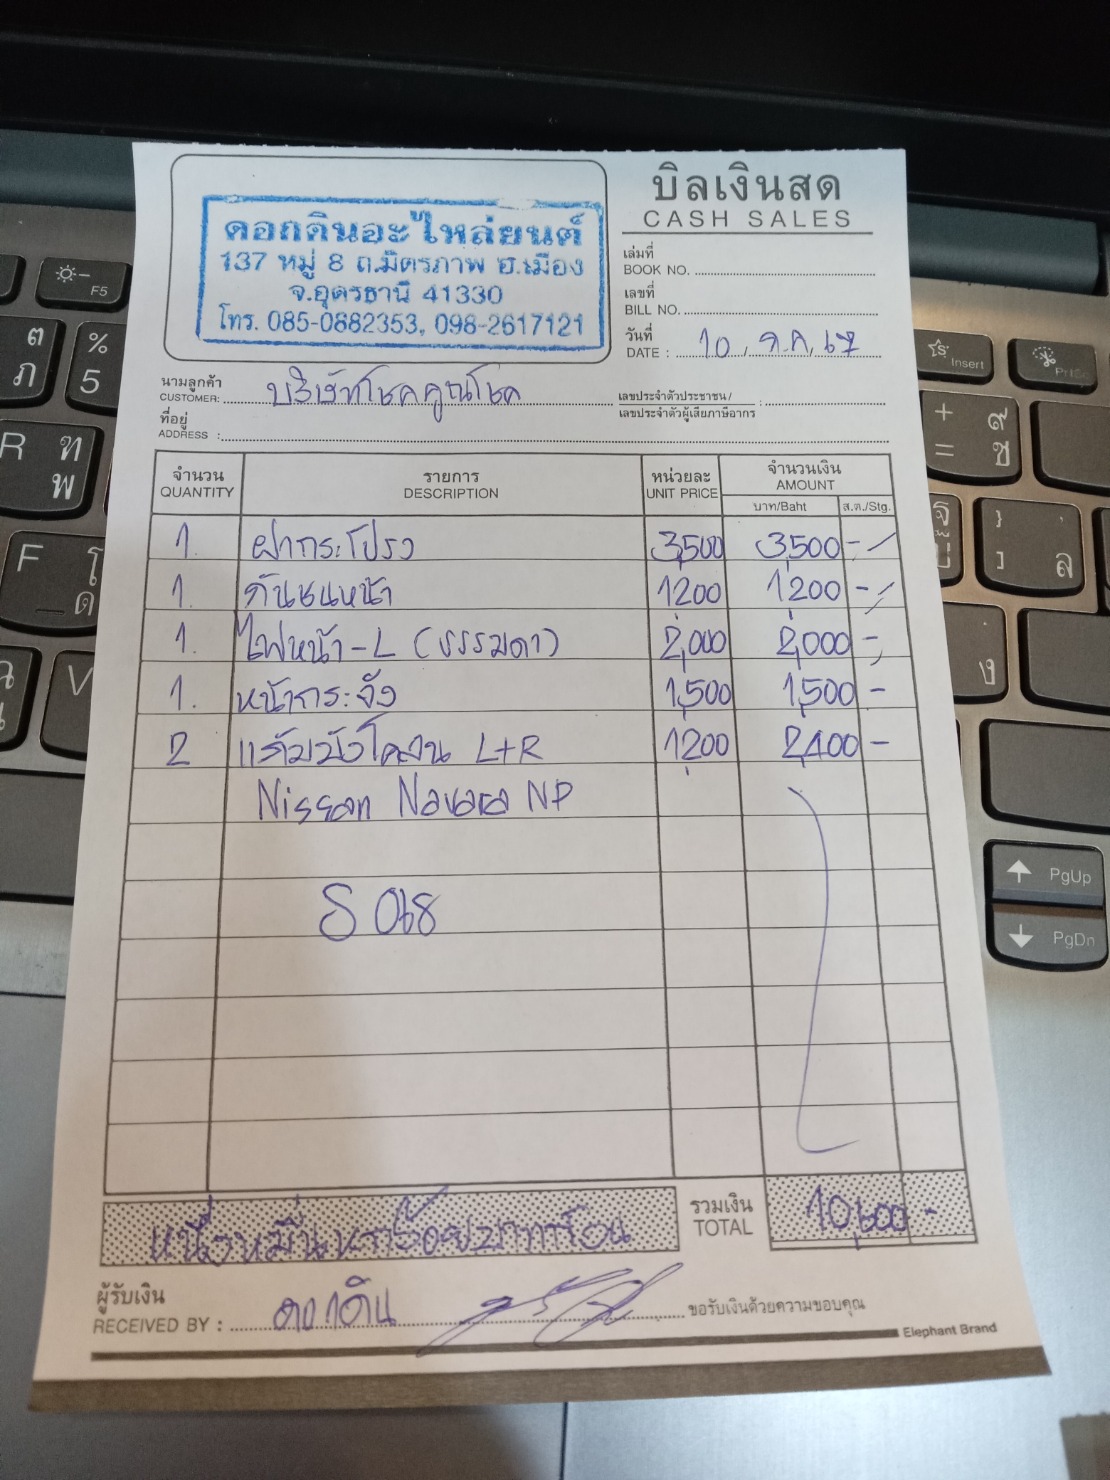 บิลเงินสด
CASH SALES
ดอกดินอะไหล่ยนต์
137 หมู่ 8 ถ.มิตรภาพ อ.เมือง
จ.อุดรธานี 41330
โทร. 085-0882353, 098-2617121
เล่มที่
BOOK NO.
เลขที่
BILL NO.
วันที่
DATE : 10, ต.ค, 67
นามลูกค้า
CUSTOMER: บริษัทโชคคูณโชค
เลขประจำตัวประชาชน/
เลขประจำตัวผู้เสียภาษีอากร :
ที่อยู่
ADDRESS :
จำนวน รายการ หน่วยละ จำนวนเงิน
QUANTITY DESCRIPTION UNIT PRICE AMOUNT
บาท/Baht ส.ต./Stg.
1. ฝากระโปรง 3,500 3,500 -
1. กันชนหน้า 1200 1200 -
1. ไฟหน้า-L (ธรรมดา) 2,000 2,000 -
1. หน้ากระจัง 1,500 1,500 -
2 แก้มบังโคลน L+R 1200 2,400 -
Nissan Navara NP
หนึ่งหมื่นหกร้อยบาทถ้วน
รวมเงิน
TOTAL 10,600 -
ผู้รับเงิน
RECEIVED BY : ดอกดิน
ขอรับเงินด้วยความขอบคุณ
Elephant Brand
F5
ต
ภ
%
5
R ท
พ
F โ
ด
V
Insert
+ ๙
= ช
}
] ล
ง
PgUp
PgDn